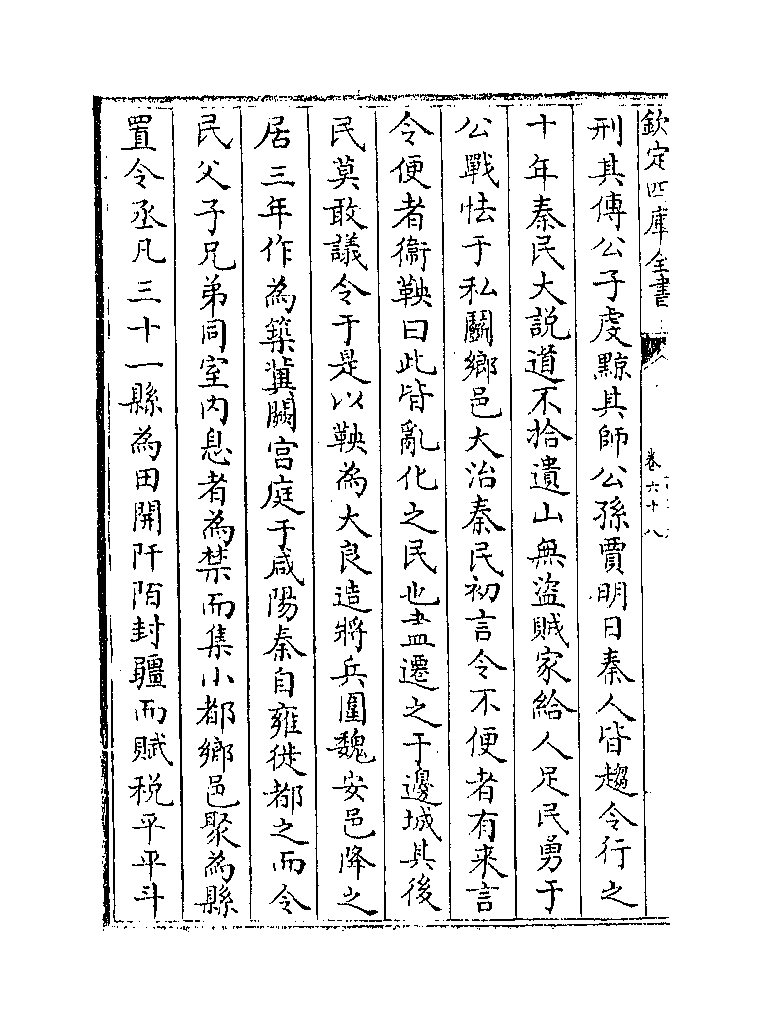 欽定四庫全書
卷六十八
刑其傅公子虔黥其師公孫賈明日秦人皆趨令行之
十年秦民大説道不拾遺山無盜賊家給人足民勇于
公戰怯于私鬬鄉邑大治秦民初言令不便者有来言
令便者衞鞅曰此皆亂化之民也盡遷之于邊城其後
民莫敢議令于是以鞅為大良造將兵圍魏安邑降之
居三年作為築冀闕宫庭于咸陽秦自雍徙都之而令
民父子兄弟同室内息者為禁而集小都鄉邑聚為縣
置令丞凡三十一縣為田開阡陌封疆而賦税平平斗